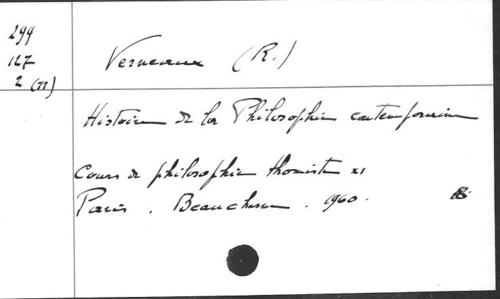 299
127
2 (11)
Verneaux (R.)
Histoire de la Philosophie contemporaine
Cours de philosophie thomiste XI
Paris. Beauchesne. 1960.